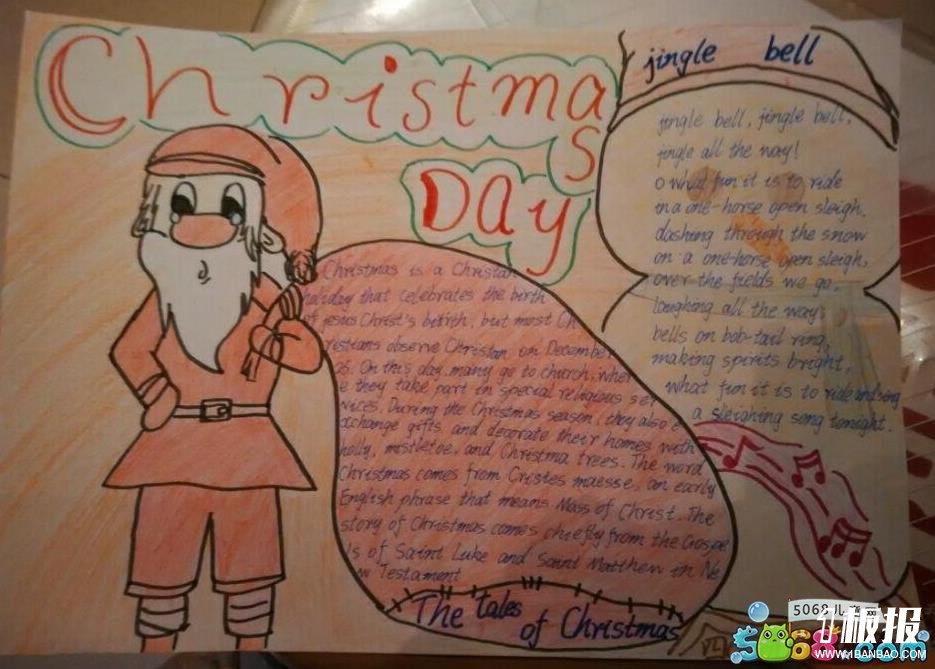 Christmas
DAy
Christmas is a Christan
holiday that celebrates the birth
of jesus Christ's bitrth, but most Ch
ristians observe Christan on December
25. On this day, many go to church, wher
e they take part in special religious ser
vices. During the Christmas season, they also e
xchange gifts and decorate their homes with
holly, mistletoe, and Christma trees. The word
Christmas comes from Cristes maesse, an early
English phrase that means Mass of Christ. The
story of Christmas comes chiefly from the Gospe
ls of Saint Luke and Saint Matthew in Ne
w Testament
The tales
of Christmas
jingle bell
jingle bell, jingle bell,
jingle all the way!
o what fun it is to ride
in a one-horse open sleigh.
dashing through the snow
on a one-horse open sleigh,
over the fields we go,
laughang all the way
bells on bob-tail ring,
making spirits bright,
what fun it is to ride and sing
a sleighing song tonight.
5068儿
板报
WWW.1BANBAO.COM